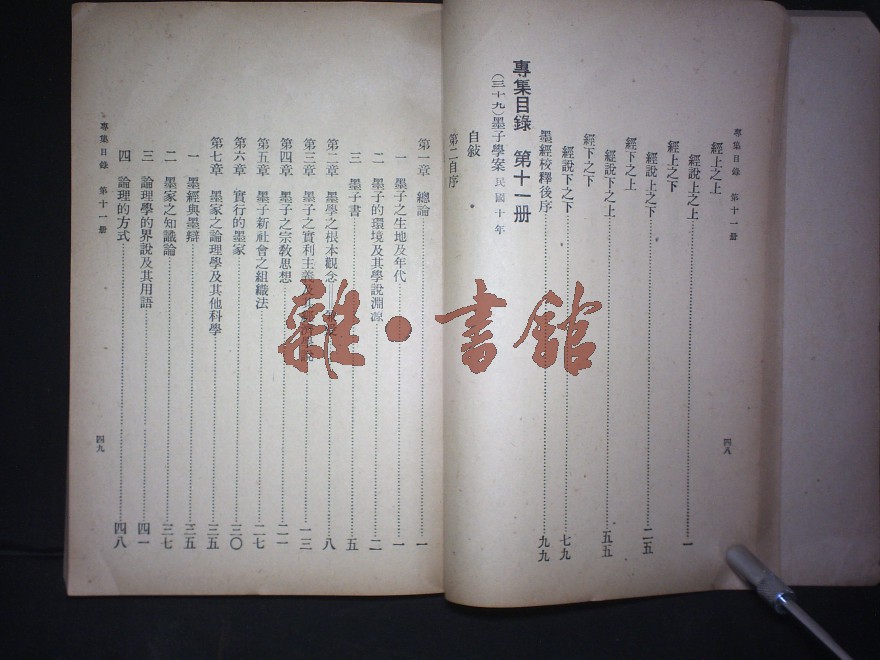 專集目錄 第十一册
經上之上
經說上之上……一
經上之下
經說上之下……二五
經下之上
經說下之上……五五
經下之下
經說下之下……七九
墨經校釋後序……九九
專集目錄 第十一册
(三十九)墨子學案 民國十年
自敍
第二自序
四八
第一章 總論……一
一 墨子之生地及年代……一
二 墨子的環境及其學說淵源……二
三 墨子書……五
第二章 墨學之根本觀念……八
第三章 墨子之實利主義及……一三
第四章 墨子之宗教思想……二一
第五章 墨子新社會之組織法……二七
第六章 實行的墨家……三〇
第七章 墨家之論理學及其他科學……三五
一 墨經與墨辯……三五
二 墨家之知識論……三七
三 論理學的界說及其用語……四一
四 論理的方式……四八
專集目錄 第十一册
四九
雜·書館